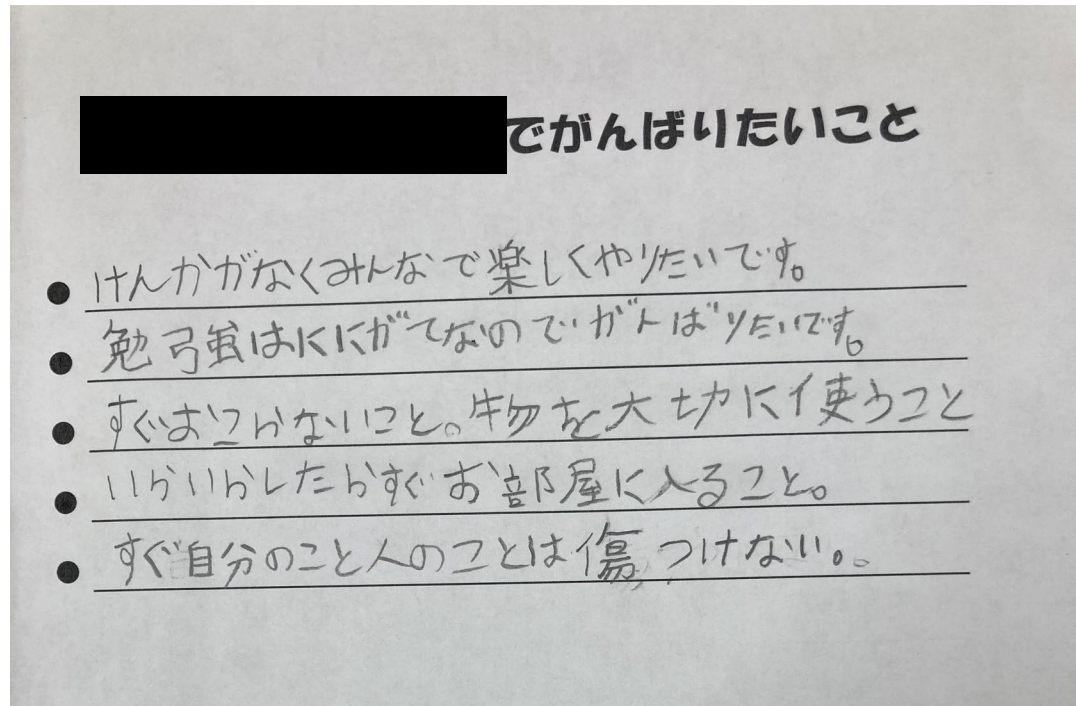 でがんばりたいこと
けんかがなくみんなで楽しくやりたいです。
勉強はににがてなのでがんばりたいです。
すぐおこらないこと。物を大切に使うこと
いらいらしたらすぐお部屋に入ること。
すぐ自分のこと人のことは傷つけない。